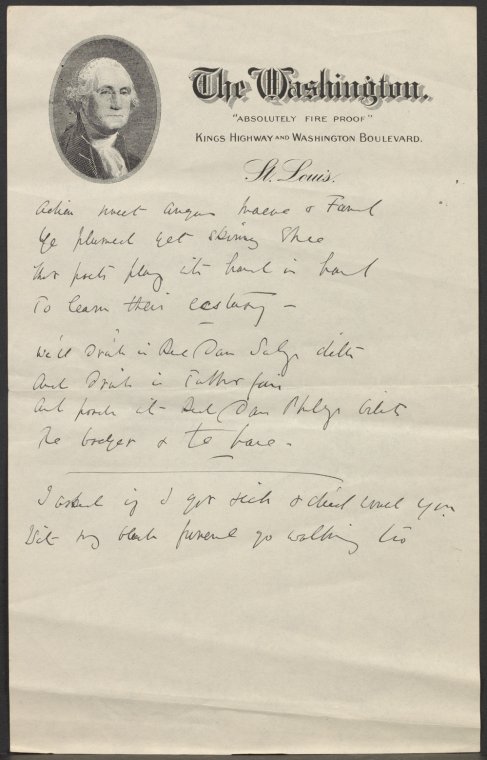 The Washington.
"ABSOLUTELY FIRE PROOF"
KINGS HIGHWAY AND WASHINGTON BOULEVARD.
St. Louis.
Adieu sweet Angus Maeve & Fand
Ye plumed yet skinny Shee
That poets play with hand in hand
To learn their ecstasy –
We'll drink in Red Dan Sally's ditch
And drink in Tubber fair
And poach with Red Dan Philly's bitch
The badger & the hare –
I asked if I got sick & died would you
With my black funeral go walking too